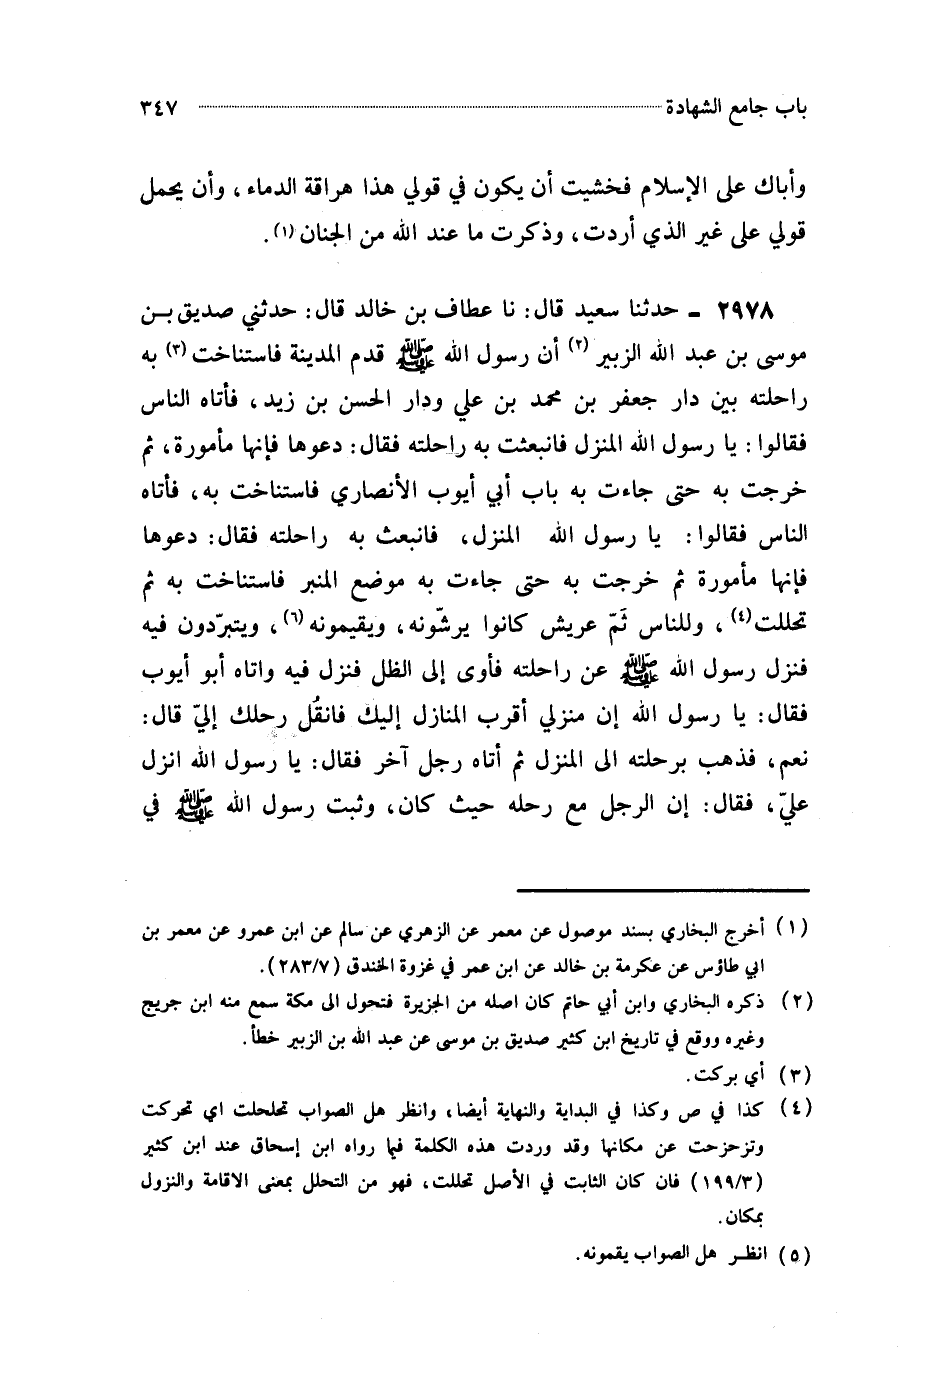 باب جامع الشهادة ٣٤٧
وأباك على الإسلام فخشيت أن يكون في قولي هذا هراقة الدماء، وأن يحمل
قولي على غير الذي أردت، وذكرت ما عند الله من الجنان (١).
٢٩٧٨ ـ حدثنا سعيد قال: نا عطاف بن خالد قال: حدثني صديق بـن
موسى بن عبد الله الزبير (٢) أن رسول الله ﷺ قدم المدينة فاستناخت (٣) به
راحلته بين دار جعفر بن محمد بن علي ودار الحسن بن زيد، فأتاه الناس
فقالوا: يا رسول الله المنزل فانبعثت به راحلته فقال: دعوها فإنها مأمورة، ثم
خرجت به حتى جاءت به باب أبي أيوب الأنصاري فاستناخت به، فأتاه
الناس فقالوا: يا رسول الله المنزل، فانبعث به راحلته فقال: دعوها
فإنها مأمورة ثم خرجت به حتى جاءت به موضع المنبر فاستناخت به ثم
تحللت (٤)، وللناس ثَمّ عريش كانوا يرشّونه، ويقيمونه (٦)، ويتبرّدون فيه
فنزل رسول الله ﷺ عن راحلته فأوى إلى الظل فنزل فيه واتاه أبو أيوب
فقال: يا رسول الله إن منزلي أقرب المنازل إليك فانقُل رحلك إليّ قال:
نعم، فذهب برحلته الى المنزل ثم أتاه رجل آخر فقال: يا رسول الله انزل
عليّ، فقال: إن الرجل مع رحله حيث كان، وثبت رسول الله ﷺ في
(١) أخرج البخاري بسند موصول عن معمر عن الزهري عن سالم عن ابن عمرو عن معمر بن
ابي طاؤس عن عكرمة بن خالد عن ابن عمر في غزوة الخندق (٢٨٣/٧).
(٢) ذكره البخاري وابن أبي حاتم كان اصله من الجزيرة فتحول الى مكة سمع منه ابن جريج
وغيره ووقع في تاريخ ابن كثير صديق بن موسى عن عبد الله بن الزبير خطأ.
(٣) أي بركت.
(٤) كذا في ص وكذا في البداية والنهاية أيضا، وانظر هل الصواب تحلحلت اي تحركت
وتزحزحت عن مكانها وقد وردت هذه الكلمة فيما رواه ابن إسحاق عند ابن كثير
(١٩٩/٣) فان كان الثابت في الأصل تحللت، فهو من التحلل بمعنى الاقامة والنزول
بمكان.
(٥) انظـر هل الصواب يقمونه.